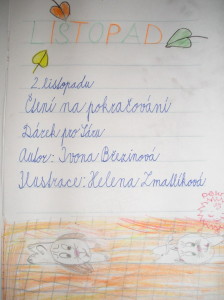 LISTOPAD
2 listopadu
Čtení na pokračování
Dárek pro Sáru
Autor: Ivona Březinová
Ilustrace: Helena Zmatlíková